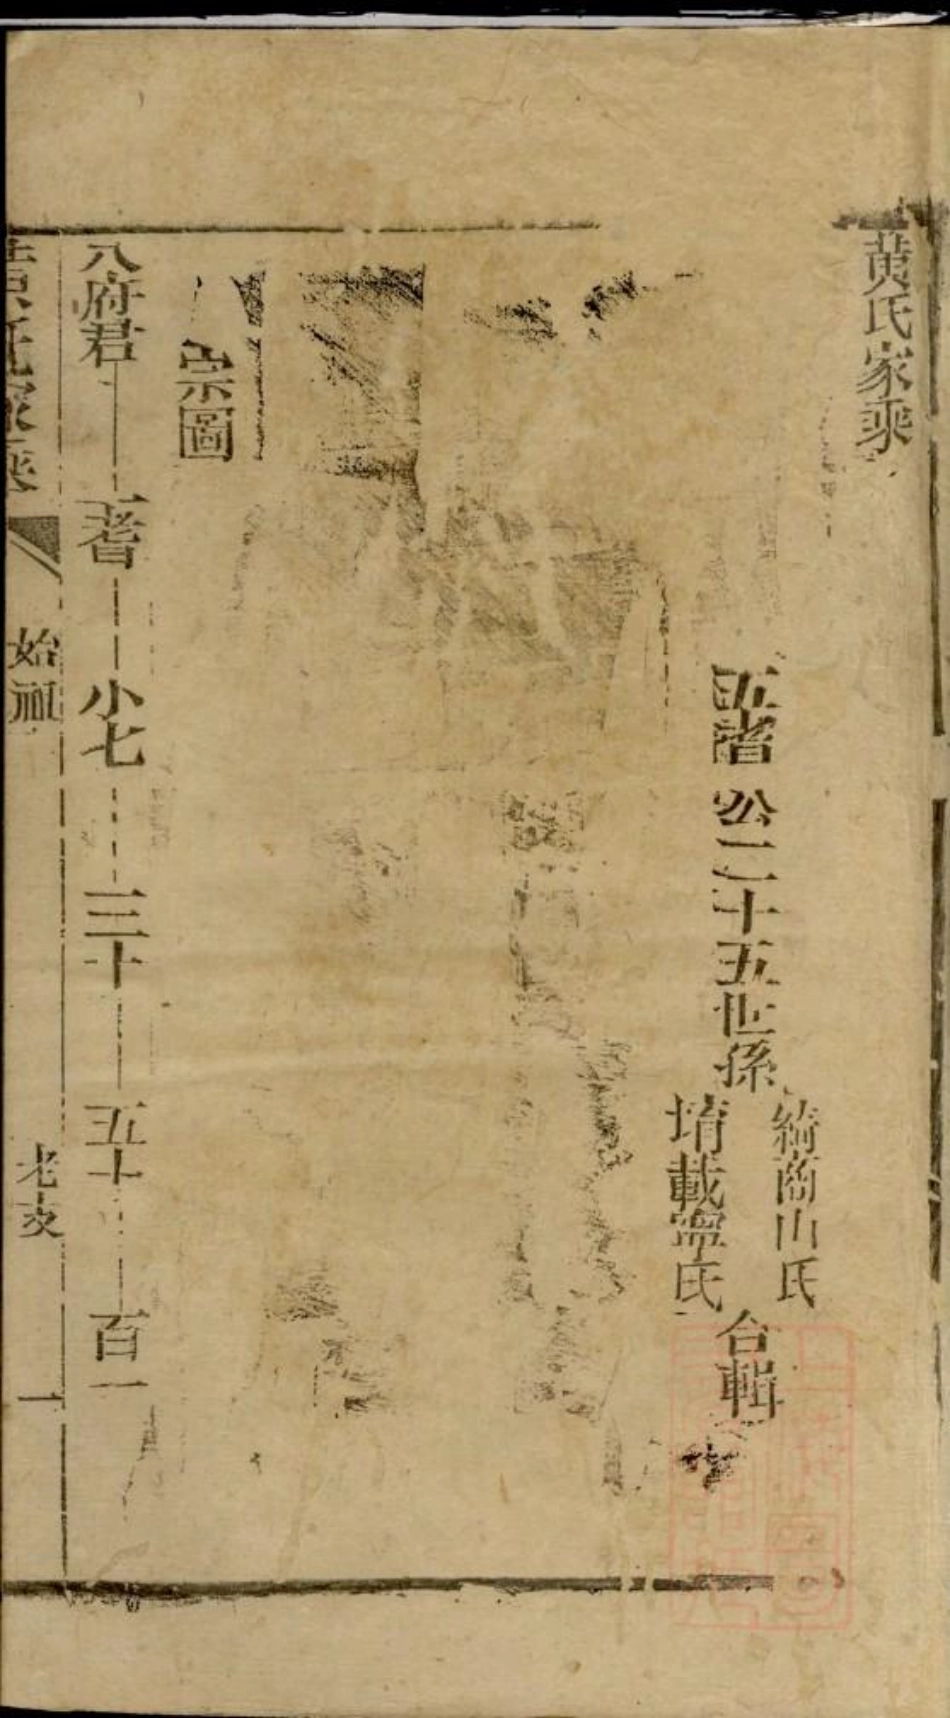 黃氏家乘
五耆公二十五世孫
綺商山氏
堉載寧氏
合輯
宗圖
八府君 一耆 小七 三十 五十 百一
黃氏家乘 始祖 一